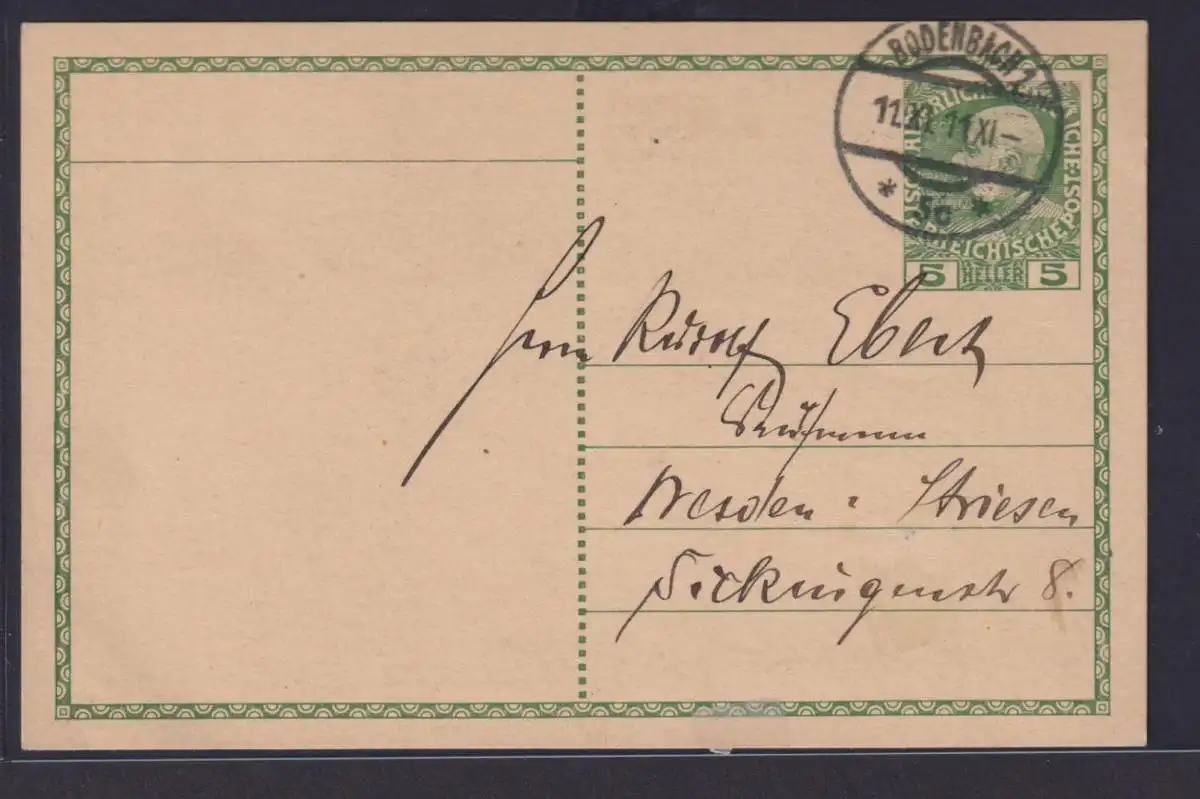 BODENBACH 1
11.XI.11 XI–
* 3c *
KAISERLICHE KÖNIGLICHE ÖSTERREICHISCHE POST
5 HELLER 5
Herrn Rudolf Ebert
Dresden - Striesen
Sickingenstr 8.